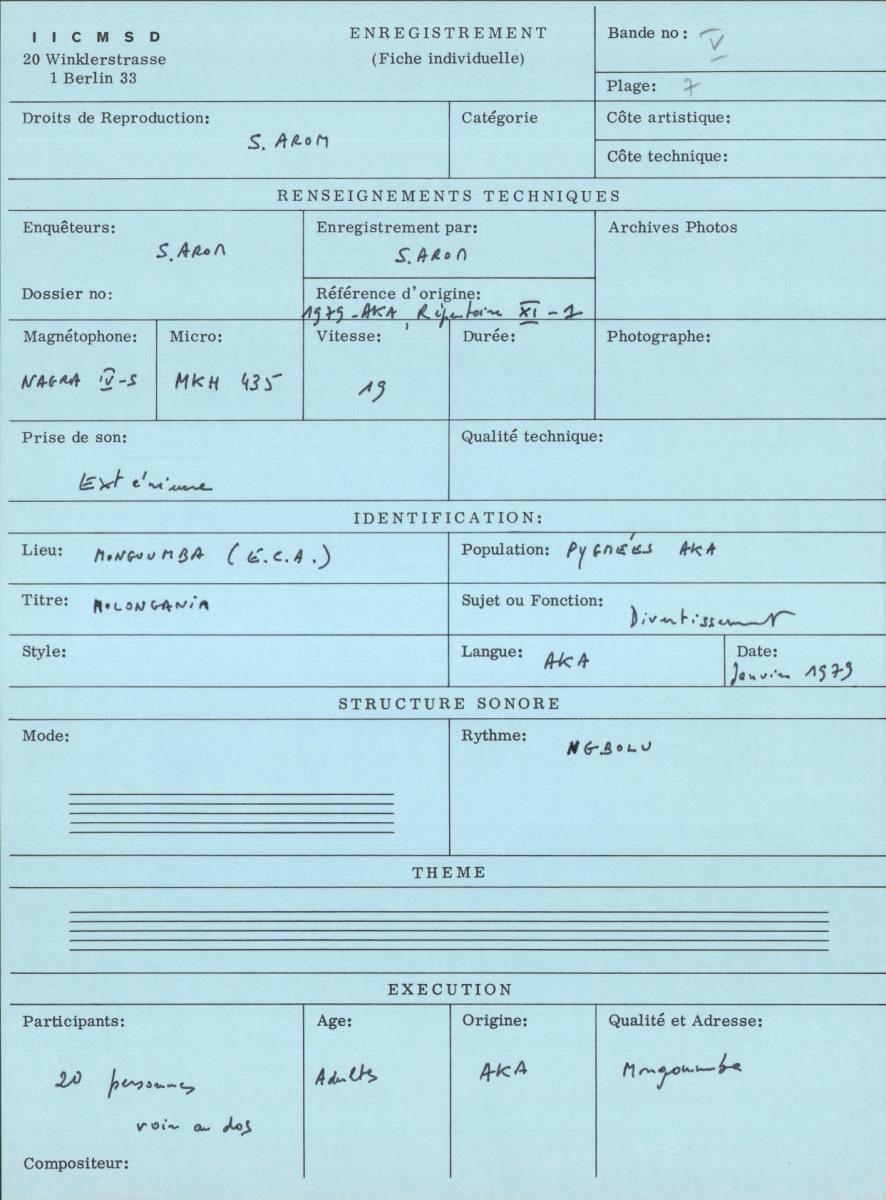 I I C M S D
20 Winklerstrasse
1 Berlin 33
ENREGISTREMENT
(Fiche individuelle)
Bande no: V
Plage: 7
Droits de Reproduction:
S. AROM
Catégorie
Côte artistique:
Côte technique:
RENSEIGNEMENTS TECHNIQUES
Enquêteurs:
S. AROM
Dossier no:
Enregistrement par:
S. AROM
Référence d'origine:
1979 - AKA, Répertoire XI - 1
Archives Photos
Magnétophone:
NAGRA IV-S
Micro:
MKH 435
Vitesse:
19
Durée:
Photographe:
Prise de son:
Extérieure
Qualité technique:
IDENTIFICATION:
Lieu: MONGOUMBA (E.C.A.)
Population: PYGMÉES AKA
Titre: MOLONGANIA
Sujet ou Fonction:
Divertissement
Style:
Langue: AKA
Date:
Janvier 1979
STRUCTURE SONORE
Mode:
Rythme: NGBOLU
THEME
EXECUTION
Participants:
20 personnes
voir au dos
Compositeur:
Age:
Adults
Origine:
AKA
Qualité et Adresse:
Mongoumba